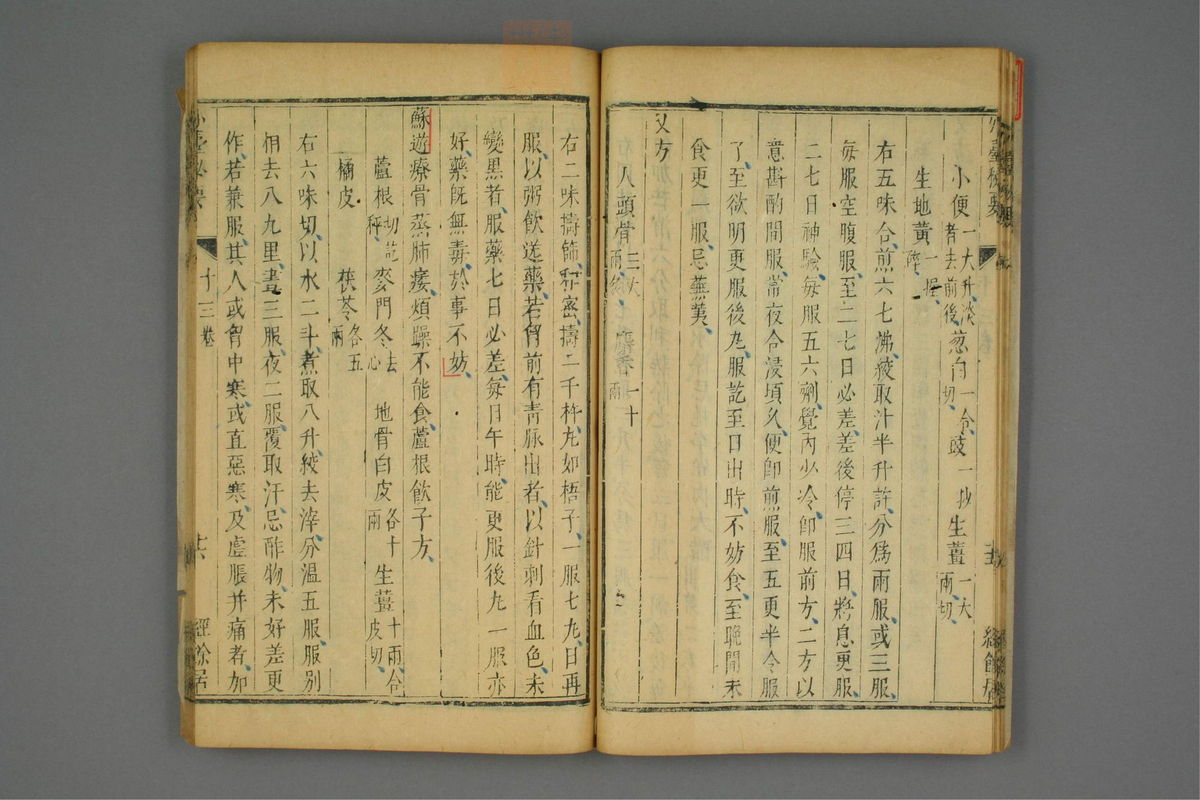 小便一大升淡者去前後葱白一合切豉一抄生薑一大兩切
生地黃一握碎
右五味合煎六七沸絞取汁半升許分爲兩服或三服
每服空腹服至二七日必差差後停三四日將息更服
二七日神驗每服五六劑覺內少冷卽服前方二方以
意斟酌間服常夜合浸頃久便卽煎服至五更半令服
了至欲明更服後丸服訖至日出時不妨食至晚間未
食更一服忌蕪荑
又方
人頭骨三大兩炙 麝香一十兩
右二味擣篩和密擣二千杵丸如梧子一服七丸日再
服以粥飲送藥若胷前有青脉出者以針刺看血色未
變黑者服藥七日必差每日午時能更服後丸一服亦
好藥旣無毒於事不妨
蘇遊療骨蒸肺痿煩躁不能食蘆根飲子方
蘆根切訖秤 麥門冬去心 地骨白皮各十兩 生薑十兩合皮切
橘皮 茯苓各五兩
右六味切以水二斗煮取八升絞去滓分溫五服服別
相去八九里晝三服夜二服覆取汗忌酢物未好差更
作若兼服其人或胷中寒或直惡寒及虛脹幷痛者加
十三卷
經餘居